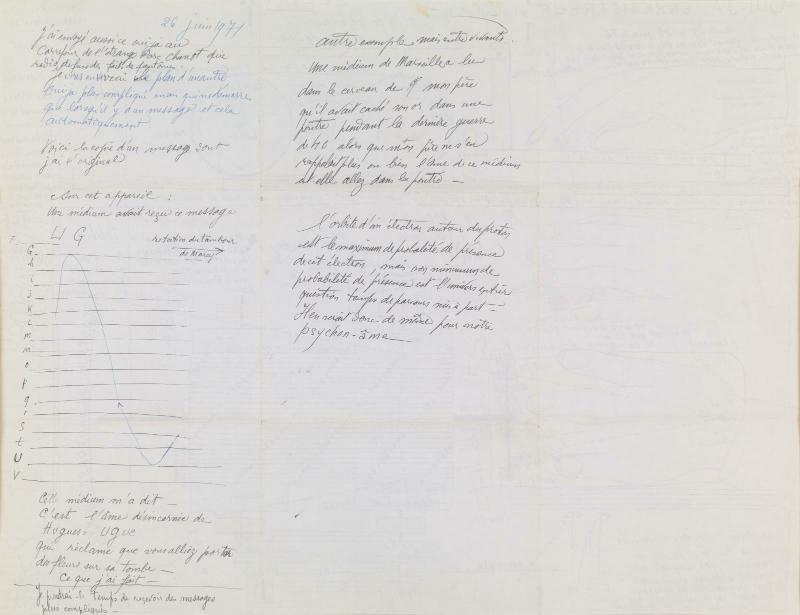 26 juin 1971
J'ai envoyé aussi ce ouija au
Carrefour de l'étrange Parc Chanot que
radio de fantômes.
Je vous enverrai le plan d'un autre
ouija plus compliqué mais qui ne démarre
que lorsqu'il y a un message et cela
automatiquement
Voici la copie d'un message dont
j'ai l'original
Sur cet appareil :
Une médium avait reçu ce message
U G
rotation du tambour
de Marey
G
h
i
j
K
L
m
n
o
p
q
r
S
t
U
V
Cette médium m'a dit —
C'est l'âme désincarnée de
Hugues = UGUE
qui réclame que vous alliez porter
des fleurs sur sa tombe —
Ce que j'ai fait —
Je perdrais le temps de recevoir des messages
plus compliqués —
autre exemple, mais entre vivants.
Une médium de Marseille a lu
dans le cerveau de mon père
qu'il avait caché son or dans une
poutre pendant la dernière guerre
de 40 alors que mon père ne s'en
rappelait plus ou bien l'âme de ce médium
est elle allez dans la poutre —
l'orbite d'un électron autour du proton
est le maximum de probabilité de présence
de cet électron, mais son minimum de
probabilité de présence est l'univers entier
question temps de parcours mis à part —
Il en serait donc de même pour notre
psychon-âme —